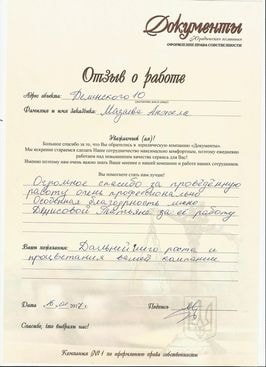 Документы
Юридическая компания
ОФОРМЛЕНИЕ ПРАВА СОБСТВЕННОСТИ
Отзыв о работе
Адрес объекта: Делинского 10
Фамилия и имя Заказчика: Мазаева Анжела
Уважаемый (ая)!
Большое спасибо за то, что Вы обратились в юридическую компанию «Документы».
Мы искренне стараемся сделать Наше сотрудничество максимально комфортным, поэтому ежедневно
работаем над повышением качества сервиса для Вас!
Именно поэтому нам очень важно знать Ваше мнение о нашей компании и работе наших сотрудников.
Вы поможете стать нам лучше!
Огромное спасибо за проведённую
работу очень профессионально
Особенная благодарность
Борисовой Татьяне за её работу
Ваши пожелания: Дальнейшего роста и
процветания вашей компании
Дата 2017г Подпись
Спасибо, что выбрали нас!
Компания №1 по оформлению права собственности